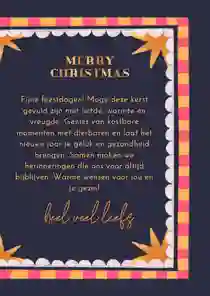 MERRY
CHRISTMAS
Fijne feestdagen! Moge deze kerst
gevuld zijn met liefde, warmte en
vreugde. Geniet van kostbare
momenten met dierbaren en laat het
nieuwe jaar je geluk en gezondheid
brengen. Samen maken we
herinneringen die ons voor altijd
bijblijven. Warme wensen voor jou en
je gezin!
heel veel liefs